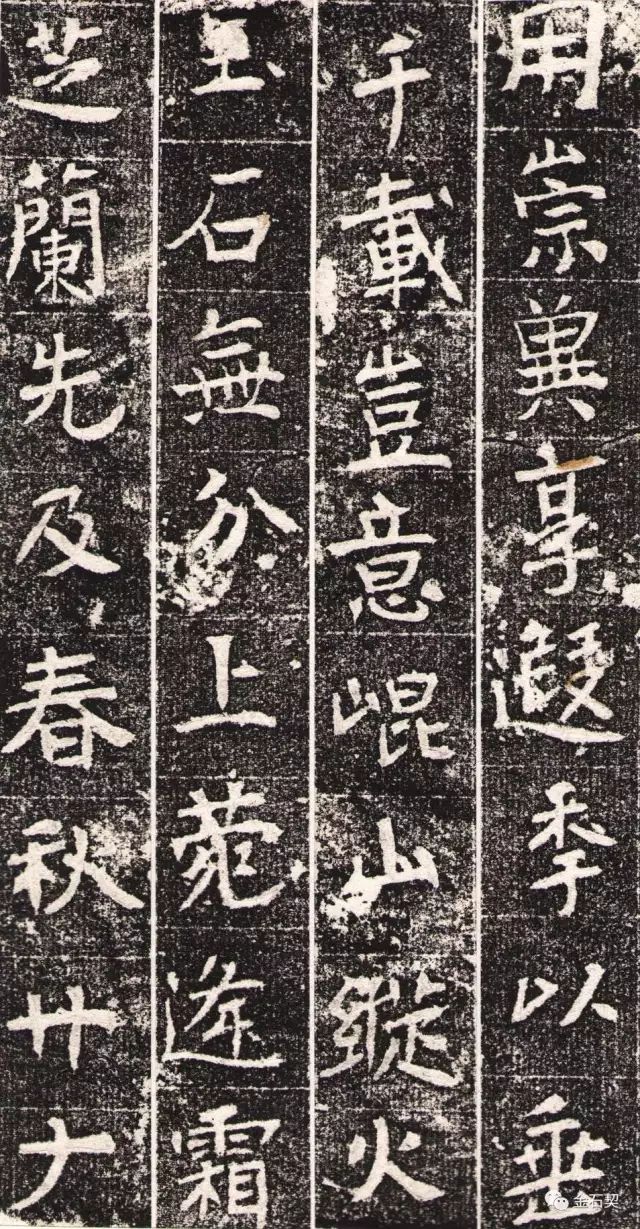 用崇冀享遐秊以垂
千載豈意崐山縱火
玉石無分上菀逢霜
芝蘭先及春秋廿
金石契